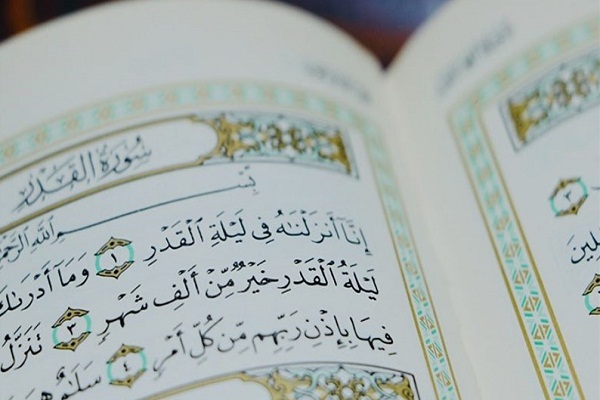 سُورَةُ القَدْرِ
بِسْمِ ٱللَّهِ ٱلرَّحْمَ
إِنَّآ أَنزَلْنَٰهُ فِى لَيْلَةِ ٱلْقَدْرِ ١ وَمَآ أَدْرَىٰكَ
لَيْلَةُ ٱلْقَدْرِ خَيْرٌ مِّنْ أَلْفِ شَهْرٍ ٣ تَنَزَّلُ
فِيهَا بِإِذْنِ رَبِّهِم مِّن كُلِّ أَمْرٍ ٤ سَلَٰمٌ هِىَ
٢